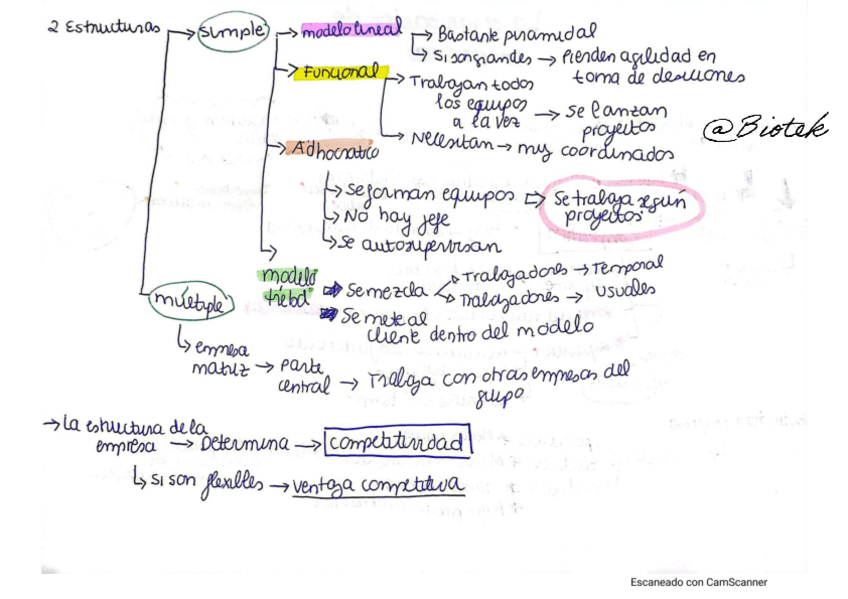 2 Estructuras → simple → modelo lineal → Bastante piramidal
→ Si son grandes → Pierden agilidad en
toma de desiciones
→ Funcional → Trabajan todos
los equipos
a la vez → se lanzan
proyectos
→ Necesitan → muy coordinados
@Biotek
→ Adhocratico
→ Se forman equipos ⇨ Se trabaja según
proyectos.
→ No hay jefe
→ Se autosupervisan
→ modelo
trébol → Se mezcla → Trabajadores → Temporal
→ Trabajadores → Usuales
→ Se mete al
cliente dentro del modelo
múltiple
↳ empresa
matriz → parte
central → Trabaja con otras empresas del
grupo
→ La estructura de la
empresa → Determina → competitividad
↳ si son flexibles → ventaja competitiva
Escaneado con CamScanner